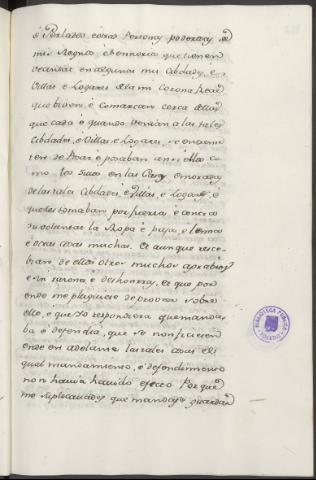 ò Perlados, è otras Personas poderosas, de
mis Regnos, è Señorios que tienen
vecindat en algunas mis Cibdades, è
Villas è Logares de la mi Corona Real
que biven, è comarcan cerca dellas
que cada è quando venian a las tales
Cibdades, è Villas, è Logares, se
ten de Posar è posaban ansi ellos co
mo los suios en las Casas è moradas
de las tales Cibdades, è Villas, è Logares, è
que les tomaban por fuerza, è contra
su voluntat la Ropa è paja, è leña
è otras cosas muchas. Et aunque rece
bian de ellos otros muchos agrabios
è sin razones, è deshonras, Et que por
ende me plaguiese de proveer sobre
ello, è que Yo respondiera que manda
ba è defendia, que se non ficiesen
ende en adelante las tales cosas el
qual mandamiento, è defendimiento
non havia havido efecto Por que
me suplicavades que mandase guardar
BIBLIOTECA PUBLICA
TOLEDO